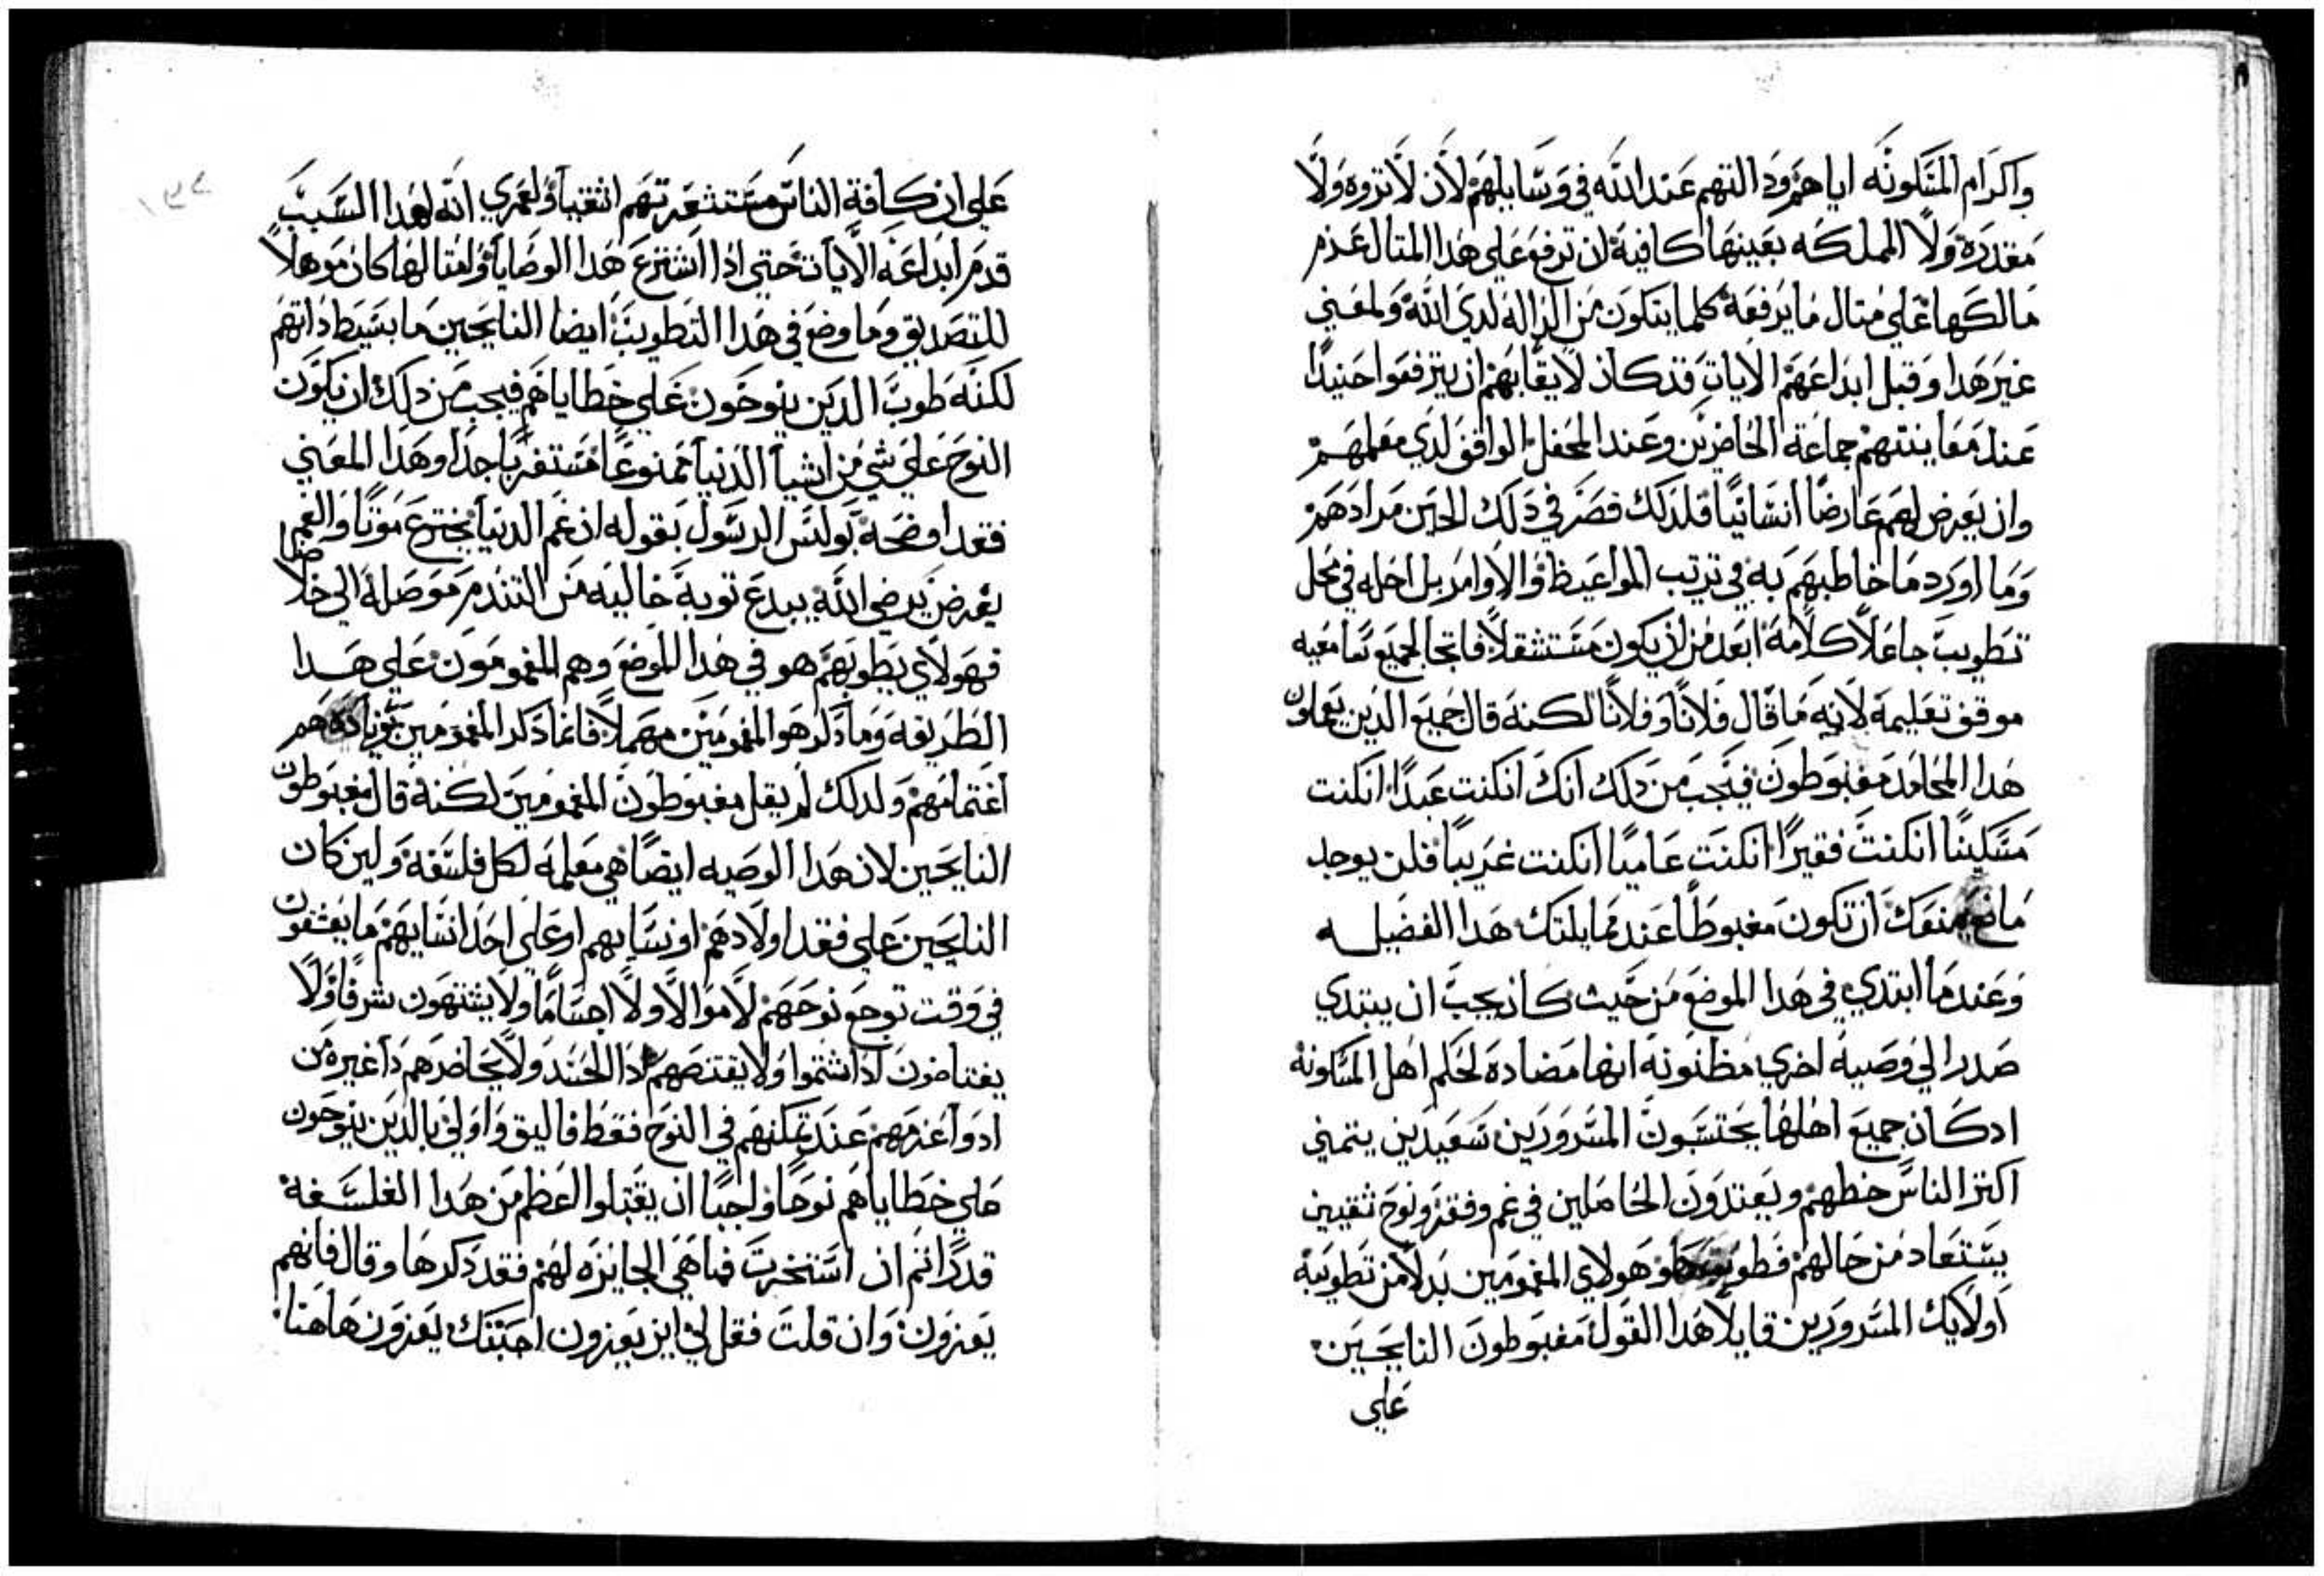 واكرام المسكونه اياهم ودالتهم عند الله في وسايلهم لان لا تروه ولا
مقدره ولا المملكه بعينها كافية ان ترفع علي هدا المتال عدم
مالكها علي متال ما يرفعه كلما يتكون من الداله لدي الله ولمعني
غير هدا وقبل ابداعهم الايات قد كان لايقا بهم ان يترفعوا حنيدا
عند معاينتهم جماعة الحاضرين وعند المحفل الواقف لدي معلمهم
وان يعرض لهم عارضا انسانيا فلدلك قصر في دلك الحين مرادهم
وما اورد ما خاطبهم به في ترتب المواعيظ والاوامر بل احله في محل
تطويب جاعلا كلامه ابعد من ان يكون مستتقلا فاتحا لجميع سامعيه
موقف تعليمه لانه ما قال فلانا وفلانا لكنه قال جميع الدين يعملون
هدا المحامد مغبوطون فيجب من دلك انك انكنت عبدا انكنت
مسكينا انكنت فقيرا انكنت عاميا انكنت غريبا فلن يوجد
مانع يمنعك ان تكون مغبوطا عندما يلتك هدا الفضيله
وعندما ابتدي في هدا الموضع من حيث كان يجب ان يبتدي
صدر الي وصية اخري مظنونه انها مضادة لحكم اهل المسكونة
ادكان جميع اهلها يحتسبون المسرورين سعيدين يتمني
اكتر الناس حظهم ويعتدون الحاصلين في غم وفقر ونوح ثقيين
يستعاد من حالهم فطوب هو هولاي المغمومين بدلا من تطويبه
اولايك المسرورين قايلا هدا القول مغبوطون النايحين
علي
علي ان كافة الناس مستشعرتهم اشقيا ولعمري انه لهدا السبب
قدم ابداعه الايات حتي ادا اشترع هدا الوصايا وامتالها كان موهلا
للتصديق وما وضع في هدا التطويب ايضا النايحين ما بسيط داتهم
لكنه طوب الدين ينوحون علي خطاياهم فيجب من دلك ان يكون
النوح علي شي من اشيا الدنيا ممنوعا مستغربا جدا وهدا المعني
فقد اوضحه بولس الرسول بقوله ان غم الدنيا يخترع موتا والغم
يعرض يرضي الله يبدع توبة خاليه من التندم موصلة الي خلاصا
فهولاي يطوبهم هو في هدا الموضع وهم المغمومون علي هدا
الطريقه وما دكر هو المغمومين مهملا فانما دكر المغمومين بزيادة هم
اغتمامهم ولدلك لم يقل مغبوطون المغمومين لكنه قال مغبوطون
النايحين لان هدا الوصيه ايضا هي معلمه لكل فلسفه ولين كان
النايحين علي فقد اولادهم او نسايهم او علي احد انسايهم ما يعشقون
في وقت توجع نوحهم لا موالا ولا اجساما ولا يشتهون شرفا ولا
يغتاضون ادا شتموا ولا يقتنصهم دا الحسد ولا يحاضرهم دا غيره من
ادوا عزمهم عند تمكنهم في النوح فقط فاليق واولي بالدين ينوحون
علي خطاياهم نوحا واجبا ان يقتبلوا العظم من هدا الفلسفة
قدرا تم ان استخبرت فما هي الجايزه لهم فقد دكرها وقال فانهم
يعزون وان قلت فقل لي اين يعزون اجبتك يعزون هاهنا